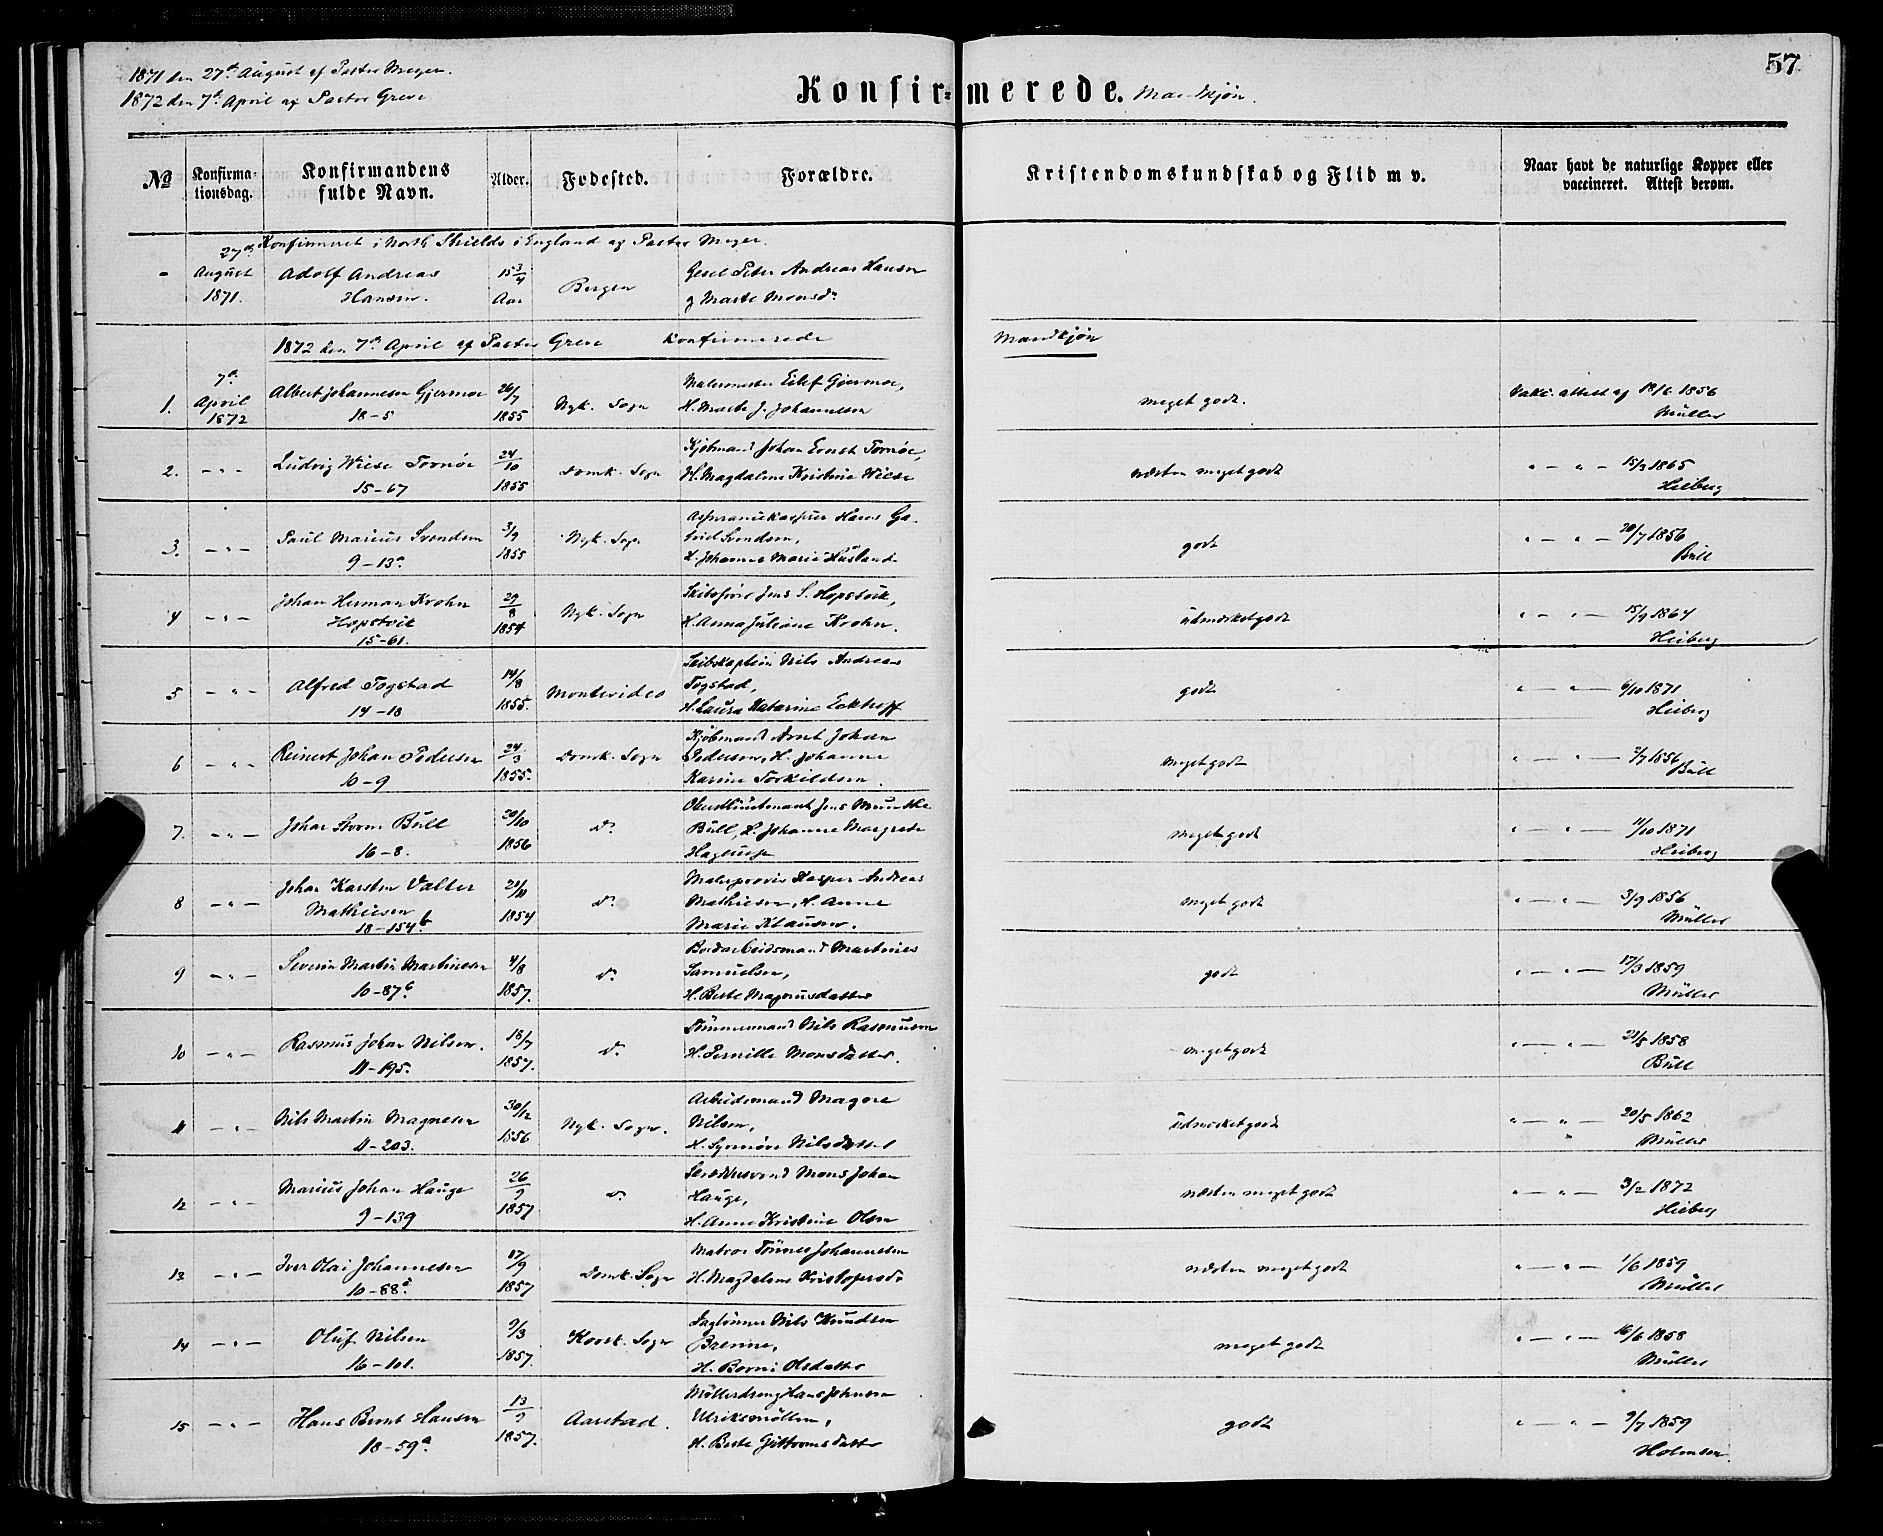 57
1871 den 27de August af Pastor Meyer.
1872 den 7de April af Pastor Greve
Konfirmerede. Mandkjøn.
No
Konfirmationsdag.
Konfirmandens fulde Navn.
Alder.
Fødested.
Forældre.
Kristendomskundskab og Flid m v.
Naar havt de naturlige Kopper eller vaccineret. Attest derom.
Konfirmeret i North Shields i England af Pastor Meyer.
- 27de August 1871. Adolf Andreas Hansen. 15 3/4 Aar Bergen Gesel Peter Andreas Hansen
g Marte Monsd.
1872 den 7de April af Pastor Greve Konfirmerede Mandkjøn
1. 7de April 1872 Albert Johannesen Gjermoe 26/7 1855 Nyk. Sogn Malermester Eilef Gjermoe,
18-5 H. Marte J. Johannesen meget godt. Vakc. attest af 18/6 1856 Müller
2. - " - Ludvig Wiese Tornøe 24/10 1855 Domk. Sogn Kjøbmand Johan Ernst Tornøe,
15-67 H. Magdalene Kristine Wiese næsten meget godt " - " - 15/3 1865 Heiberg
3. - " - Paul Marius Svendsen 3/9 1855 Nyk. Sogn Hans
9-13a Svendsen,
H. Johanne Marie Husland godt " - " - 20/7 1856 Bull
4 - " - Johan Herman Krohn 29/8 1854 Nyk. Sogn Jens S. Hopstock,
15-61. H. Anna Juliane Krohn. udmerket godt " - " - 15/9 1864 Heiberg
5 - " - Alfred Togstad 14/8 1855. Montevideo Skibskaptein Nils Andreas
14-18 Togstad,
H. Laura Katarine godt " - " - 6/10 1871 Heiberg
6 - " - Reinert Johan Pedersen 24/3 1855. Domk. Sogn Kjøbmand Arnt Johan
10-9 Pedersen, H. Johanne
Karine Torkildsen. meget godt " - " - 2/7 1856 Bull
7. - " - Johan Storm Bull 20/10 1856 do Oberstlieutenant Jens Munthe
16-8. Bull, H. Johanne Margrete
Hagerup meget godt " - " - 11/10 1871 Heiberg
8 - " - Johan Karsten Valter 21/11 1854 do Kasper Andreas
Mathiesen Mathiesen, H. Anne
18-154b Marie Klausen. meget godt " - " - 3/9 1856 Müller
9 - " - Severin Martin Martinesen 4/8 1857. do Bordarbeidsmand Martines
10-87b Samuelsen,
H. Berte Magnusdatter godt " - " - 17/3 1859 Müller
10 - " - Rasmus Johan Nilsen. 18/7 1857. do Tømmermand Nils Rasmussen
11-195. H. Pernille Monsdatter. meget godt " - " - 21/5 1858 Bull
11 - " - Nils Martin Magnesen 30/12 1856 Nyk. Sogn. Arbeidsmand Magne
11-203. Nilsen,
H. Synnøve Nilsdatter udmerket godt " - " - 20/5 1862 Müller
12 - " - Marius Johan Hauge 26/9 1857 do Skræddersvend Mons Johan
9-139 Hauge,
H. Anne Kristine Olsen næsten meget godt " - " - 3/2 1872 Heiberg
13 - " - Iver Olai Johannesen 17/9 1857 Domk. Sogn Matros Tønnes Johannesen
10-88a H. Magdalene Kristofersd. næsten meget godt " - " - 1/6 1859 Müller
14 - " - Oluf Nilsen 9/3 1857. Korsk. Sogn Dagløner Nils Knudsen
16-101. Brenne,
H. Borni Olsdatter meget godt " - " - 16/6 1858 Müller
15 - " - Hans Bernt Hansen 13/9 1857. Aarstad. Møllerdreng Hans Johnsen
18-59a Ulriksmøllen,
H. Berte Guttormsdatter godt " - " - 9/7 1859 Holmsen.